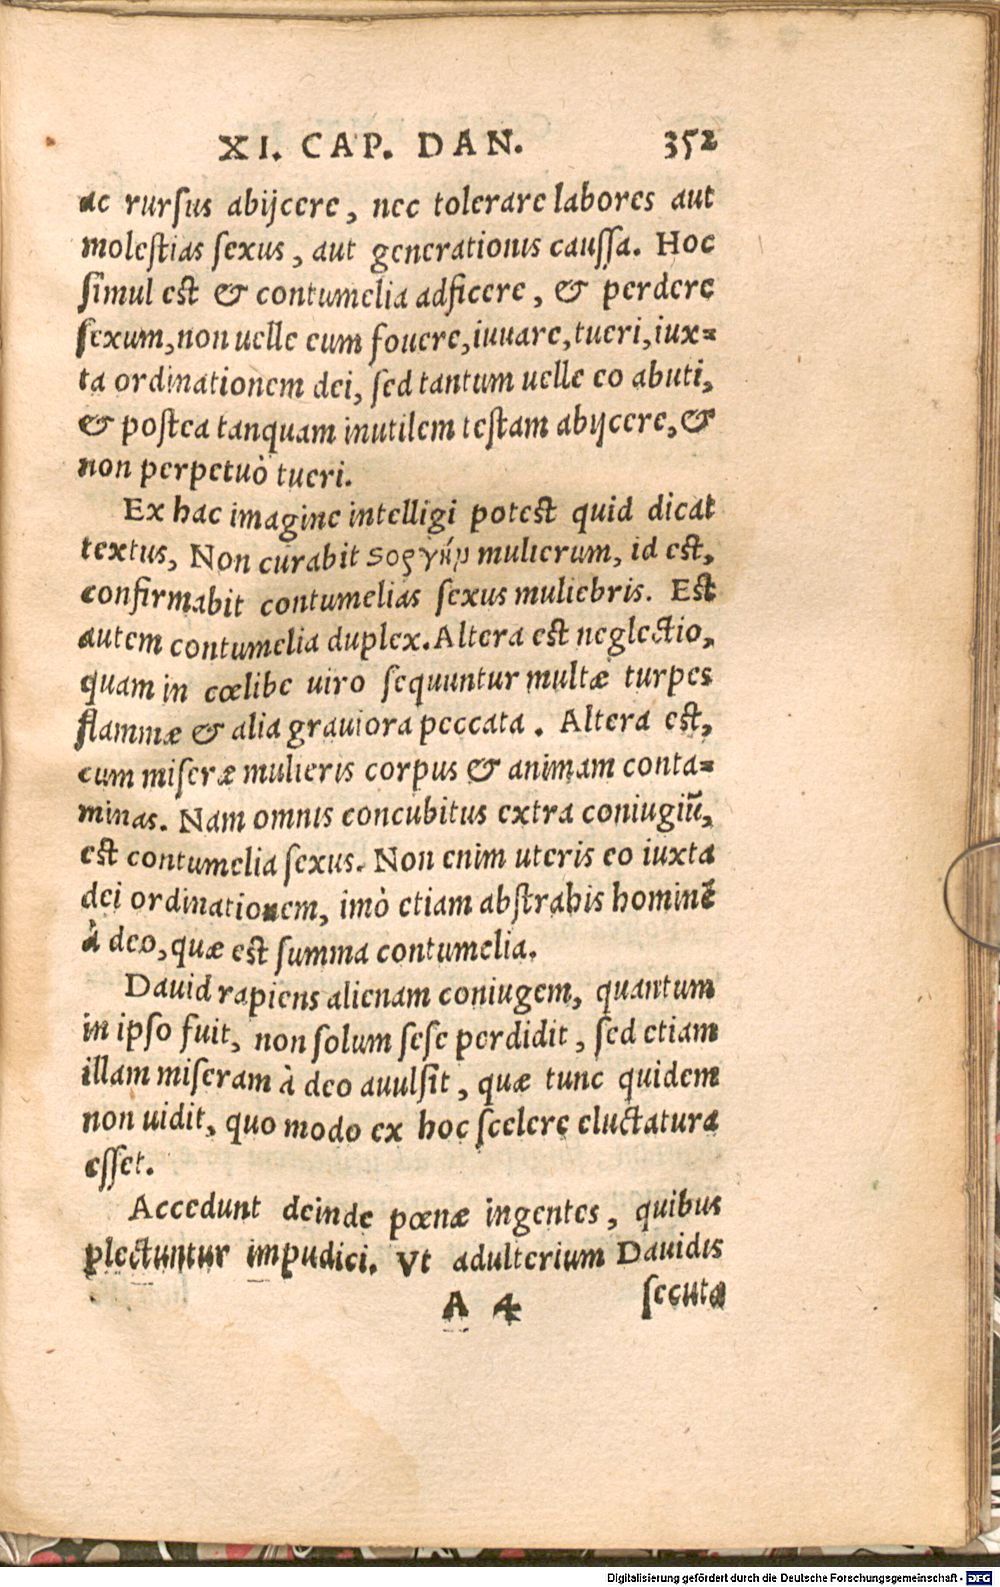 XI. CAP. DAN. 352
ac rurſus abijcere, nec tolerare labores aut
moleſtias ſexus, aut generationis cauſſa. Hoc
ſimul est & contumelia adficere, & perdere
ſexum, non uelle eum fouere, iuuare, tueri, iux=
ta ordinationem dei, ſed tantum uelle eo abuti,
& poſtea tanquam inutilem teſtam abijcere, &
non perpetuò tueri.
Ex hac imagine intelligi potest quid dicat
textus, Non curabit ſοργὴν mulierum, id est,
confirmabit contumelias ſexus muliebris. Est
autem contumelia duplex. Altera est neglectio,
quam in cœlibe uiro ſequuntur multæ turpes
flammæ & alia grauiora peccata. Altera est,
cum miſeræ mulieris corpus & animam conta=
minas. Nam omnis concubitus extra coniugiū,
est contumelia ſexus. Non enim uteris eo iuxta
dei ordinationem, imò etiam abſtrahis hominē
à deo, quæ est ſumma contumelia.
Dauid rapiens alienam coniugem, quantum
in ipſo fuit, non ſolum ſeſe perdidit, ſed etiam
illam miſeram à deo auulſit, quæ tunc quidem
non uidit, quo modo ex hoc ſcelere eluctatura
eſſet.
Accedunt deinde pœnæ ingentes, quibus
plectuntur impudici. Vt adulterium Dauidis
A 4 ſecutæ
Digitalisierung gefördert durch die Deutsche Forschungsgemeinschaft - DFG